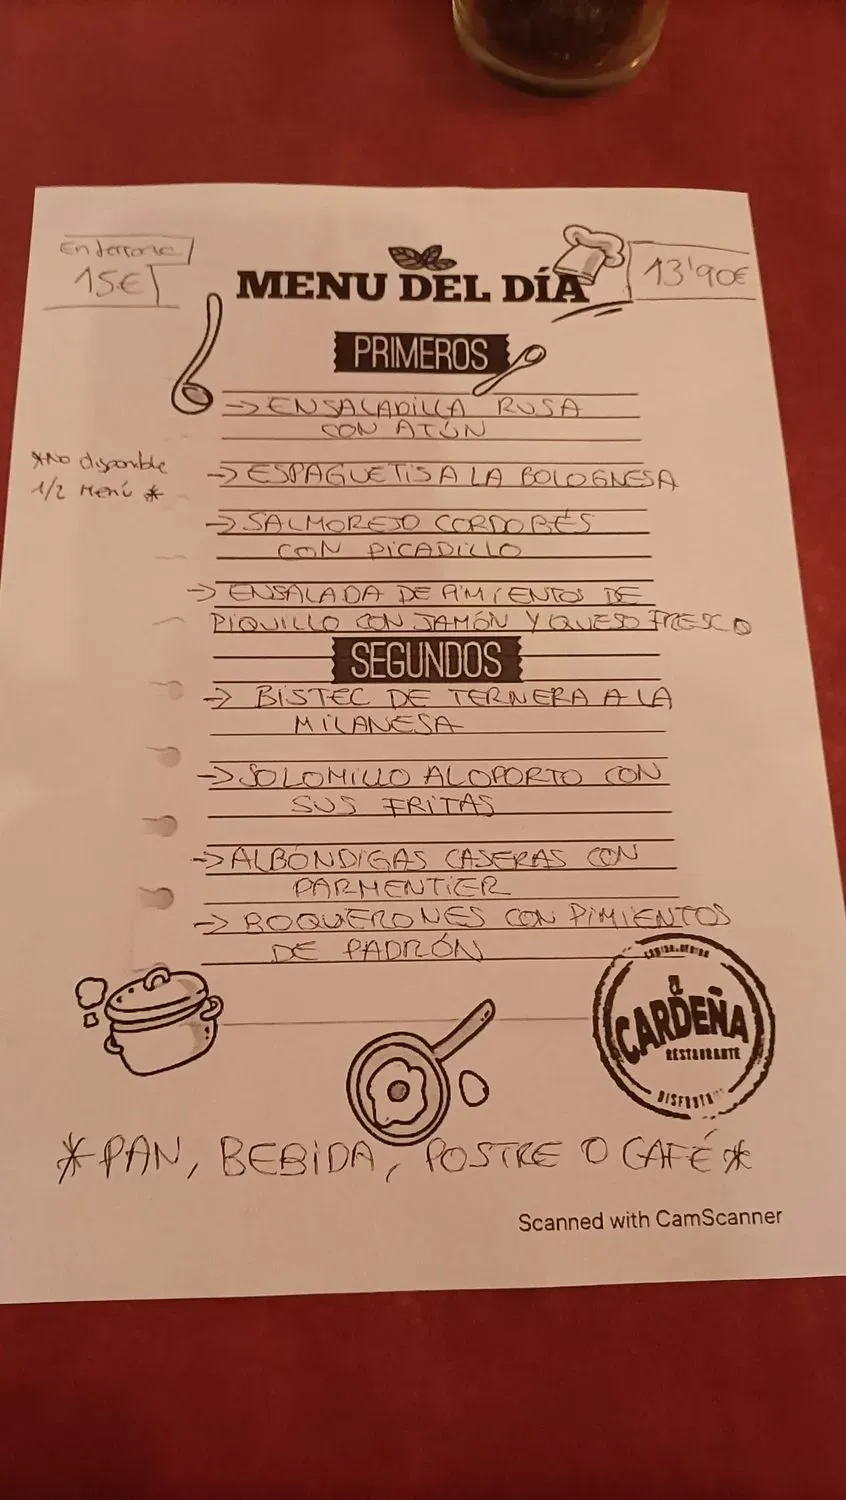 En terraza
15€
MENU DEL DÍA
13'90€
PRIMEROS
→ ENSALADILLA RUSA
CON ATÚN
*No disponible
1/2 Menú *
→ ESPAGUETIS A LA BOLOGNESA
→ SALMOREJO CORDOBÉS
CON PICADILLO
→ ENSALADA DE PIMIENTOS DE
PIQUILLO CON JAMÓN Y QUESO FRESCO
SEGUNDOS
→ BISTEC DE TERNERA A LA
MILANESA
→ SOLOMILLO AL OPORTO CON
SUS FRITAS
→ ALBÓNDIGAS CASERAS CON
PARMENTIER
→ BOQUERONES CON PIMIENTOS
DE PADRÓN
El
CARDEÑA
RESTAURANTE
*PAN, BEBIDA, POSTRE O CAFÉ*
Scanned with CamScanner